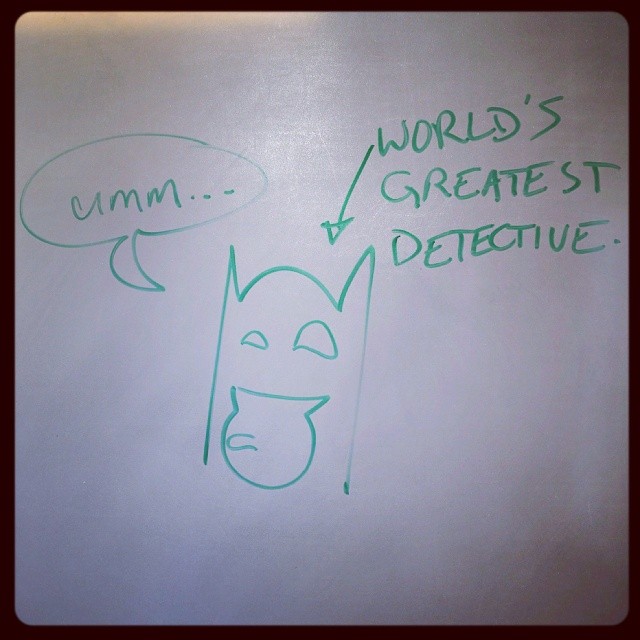 umm...
WORLD'S
GREATEST
DETECTIVE.